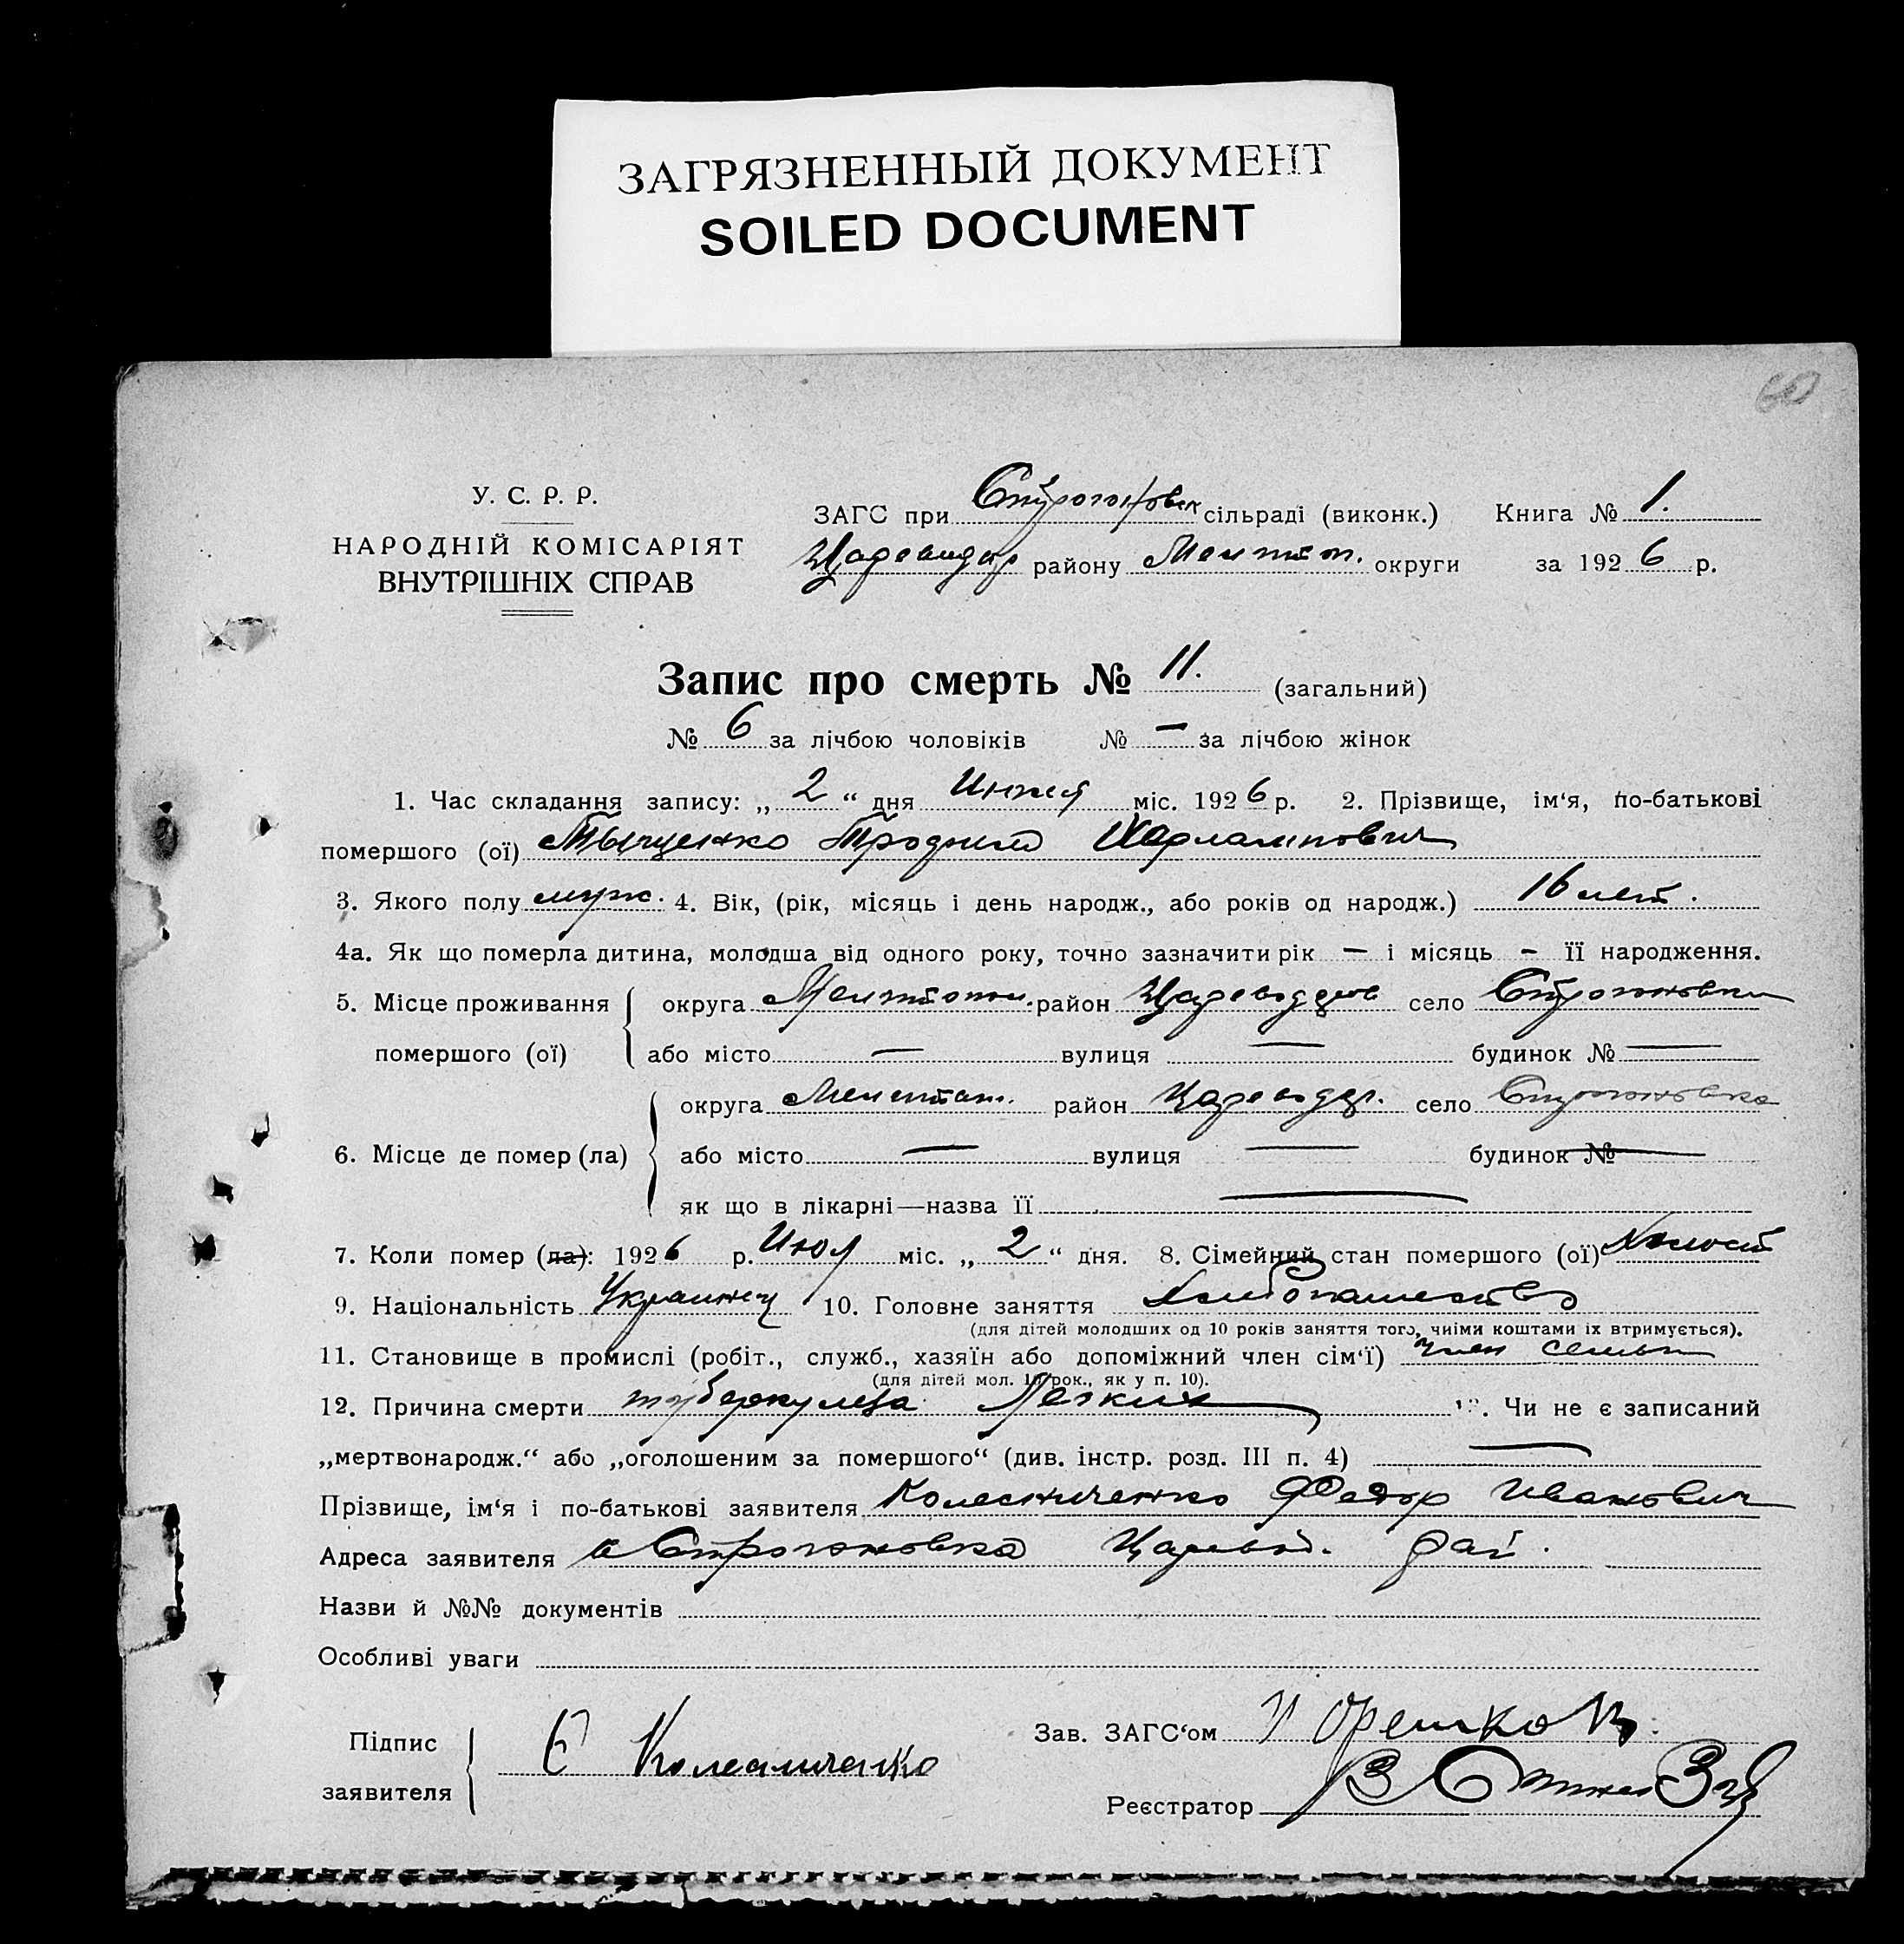 ЗАГРЯЗНЕННЫЙ ДОКУМЕНТ
SOILED DOCUMENT
60
У. С. Р. Р.
НАРОДНІЙ КОМІСАРІЯТ
ВНУТРІШНІХ СПРАВ
ЗАГС при Строгоновск сільраді (виконк.) Книга № 1.
району Мелитоп. округи за 1926 р.
Запис про смерть № 11. (загальний)
№ 6 за лічбою чоловіків № — за лічбою жінок
1. Час складання запису: „ 2 “ дня міс. 1926 р. 2. Прізвище, ім‘я, по-батькові
помершого (ої) Харлампович
3. Якого полу муж. 4. Вік, (рік, місяць і день народж., або років од народж.) 16 лет.
4а. Як що померла дитина, молодша від одного року, точно зазначити рік — і місяць - її народження.
5. Місце проживання округа Мелитопол. район село Строгоновки
помершого (ої) або місто — вулиця — будинок № —
округа Мелитоп. район Цареводар. село Строгоновка
6. Місце де помер (ла) або місто — вулиця — будинок № —
як що в лікарні—назва її —
7. Коли помер (ла): 1926 р. Июл міс. „ 2 “ дня. 8. Сімейний стан помершого (ої) Холост
9. Національність Украинец 10. Головне заняття Хлебопашество
(для дітей молодших од 10 років заняття того, чиїми коштами їх втримується).
11. Становище в промислі (робіт., служб., хазяїн або допоміжний член сім‘ї) Член семьи
(для дітей мол. 10 рок., як у п. 10).
12. Причина смерти туберкулеза Легких 13. Чи не є записаний
„мертвонародж.“ або „оголошеним за помершого“ (див. інстр. розд. III п. 4) —
Прізвище, ім‘я і по-батькові заявителя Колесниченко Федор Иванович
Адреса заявителя с Строгоновка Царевод. рай.
Назви й №№ документів
Особливі уваги
Підпис
заявителя Колесниченко
Зав. ЗАГС‘ом
Реєстратор